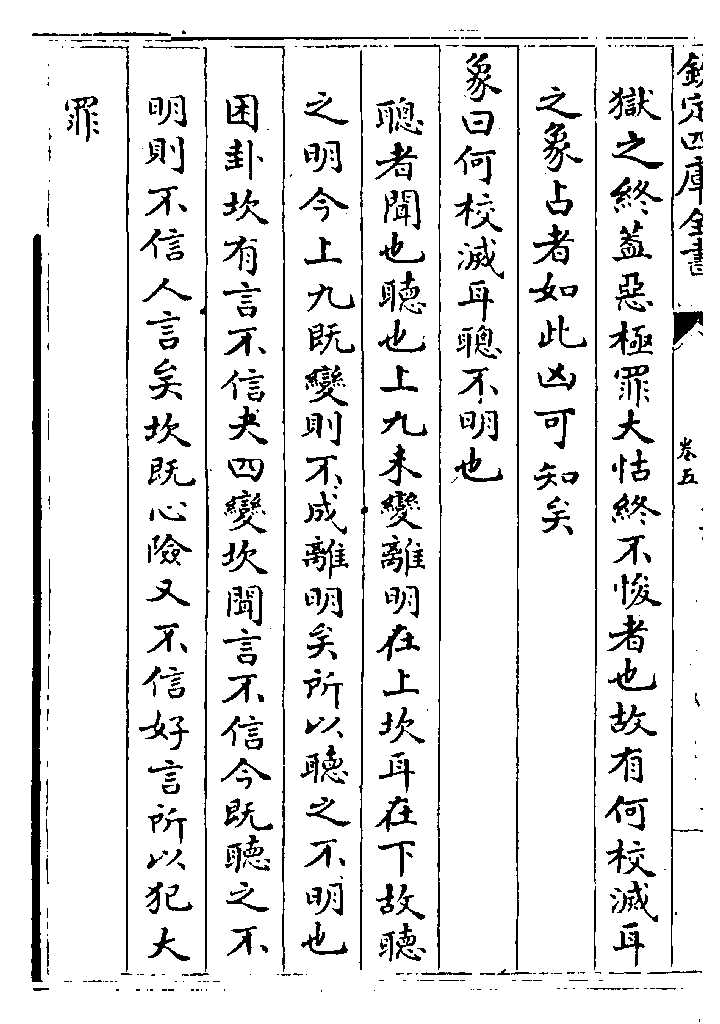 欽定四庫全書
卷五
獄之終蓋惡極罪大怙終不悛者也故有何校滅耳
之象占者如此凶可知矣
象曰何校滅耳聰不明也
聰者聞也聽也上九未變離明在上坎耳在下故聽
之明今上九既變則不成離明矣所以聽之不明也
困卦坎有言不信夬四變坎聞言不信今既聽之不
明則不信人言矣坎既心險又不信好言所以犯大
罪